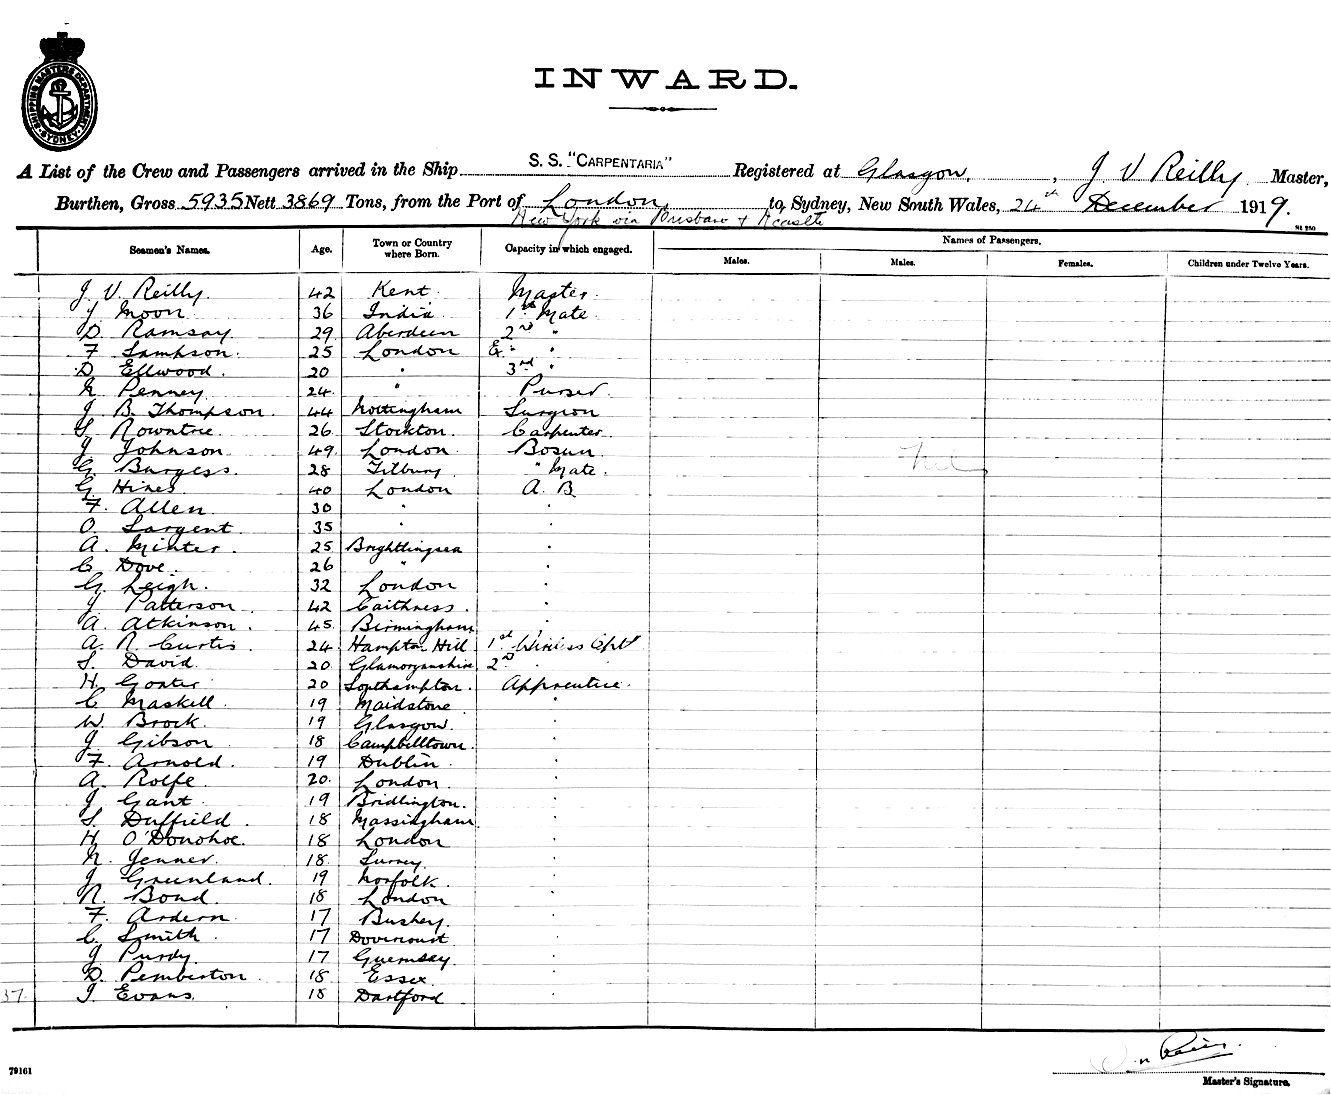 SHIPPING MASTERS DEPARTMENT SYDNEY
INWARD.
A List of the Crew and Passengers arrived in the Ship S. S. "CARPENTARIA" Registered at Glasgow, , J V Reilly Master,
Burthen, Gross 5935 Nett 3869 Tons, from the Port of London to Sydney, New South Wales, 24th December 1919.
New York via Brisbane &
St 250
Seamen's Names. Age. Town or Country where Born. Capacity in which engaged. Names of Passengers.
Males. Males. Females. Children under Twelve Years.
J V Reilly. 42 Kent Master.
J Moon 36 India 1st Mate
D. Ramsay. 29. Aberdeen 2nd "
F Sampson. 25 London Ex " "
D. Ellwood. 20 " 3rd "
N Penney. 24. " Purser.
J B. Thompson. 44 Nottingham Surgeon
S Rowntree 26. Stockton. Carpenter.
J Johnson 49. London Bosun
G. Burgess. 28 Tilbury " Mate.
Nil
G. Hines 40 London A. B.
F. Allen. 30 " "
O. Sargent. 35 " "
A. Minter. 25 Brightlingsea "
C Dove. 26 " "
G. Leigh. 32 London "
J Patterson 42 Caithness. "
A. Atkinson. 45. Birmingham "
A. R. Curtis 24 Hampton Hill 1st Wireless Opt
S. David. 20 Glamorganshire 2nd "
H. Goater 20 Southampton. Apprentice.
C Maskell. 19 Maidstone "
W. Brock. 19 Glasgow. "
J. Gibson 18 Campbelltown. "
F. Arnold. 19 Dublin. "
A. Rolfe 20. London. "
J Gant. 19 Bridlington. "
S. Duffield. 18 Massingham. "
H. O'Donohoe. 18 London "
N. Jenner. 18. Surrey. "
J Greenland. 19 Norfolk. "
R. Bond. 18 London "
F. Ardern. 17 Bushey. "
C Smith. 17 Dovercourt "
J Purdy. 17 Guernsay. "
D. Pemberton. 18 Essex. "
37. J. Evans. 18 Dartford "
Master's Signature.
79161